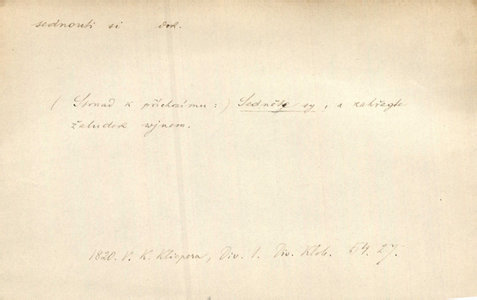 sednouti si dok.
( Strnad k příchozímu : ) Sedněte sy, a zahřegte
žaludek wjnem.
1820. V. K. Klicpera, Div. 1. Div. Klob. 64. 27.